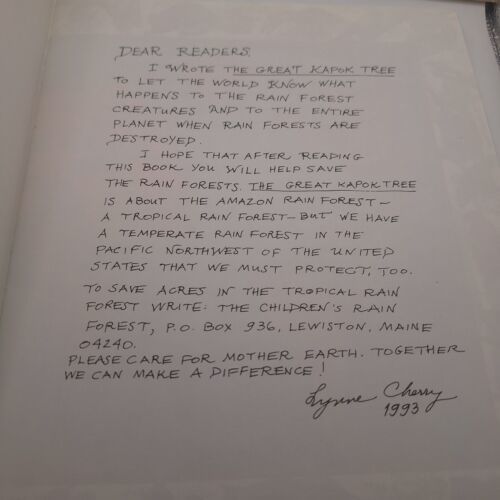 DEAR READERS,
I WROTE THE GREAT KAPOK TREE
TO LET THE WORLD KNOW WHAT
HAPPENS TO THE RAIN FOREST
CREATURES AND TO THE ENTIRE
PLANET WHEN RAIN FORESTS ARE
DESTROYED.
I HOPE THAT AFTER READING
THIS BOOK YOU WILL HELP SAVE
THE RAIN FORESTS. THE GREAT KAPOK TREE
IS ABOUT THE AMAZON RAIN FOREST—
A TROPICAL RAIN FOREST—BUT WE HAVE
A TEMPERATE RAIN FOREST IN THE
PACIFIC NORTHWEST OF THE UNITED
STATES THAT WE MUST PROTECT, TOO.
TO SAVE ACRES IN THE TROPICAL RAIN
FOREST WRITE: THE CHILDREN'S RAIN
FOREST, P.O. BOX 936, LEWISTON, MAINE
04240.
PLEASE CARE FOR MOTHER EARTH. TOGETHER
WE CAN MAKE A DIFFERENCE!
Lynne Cherry
1993